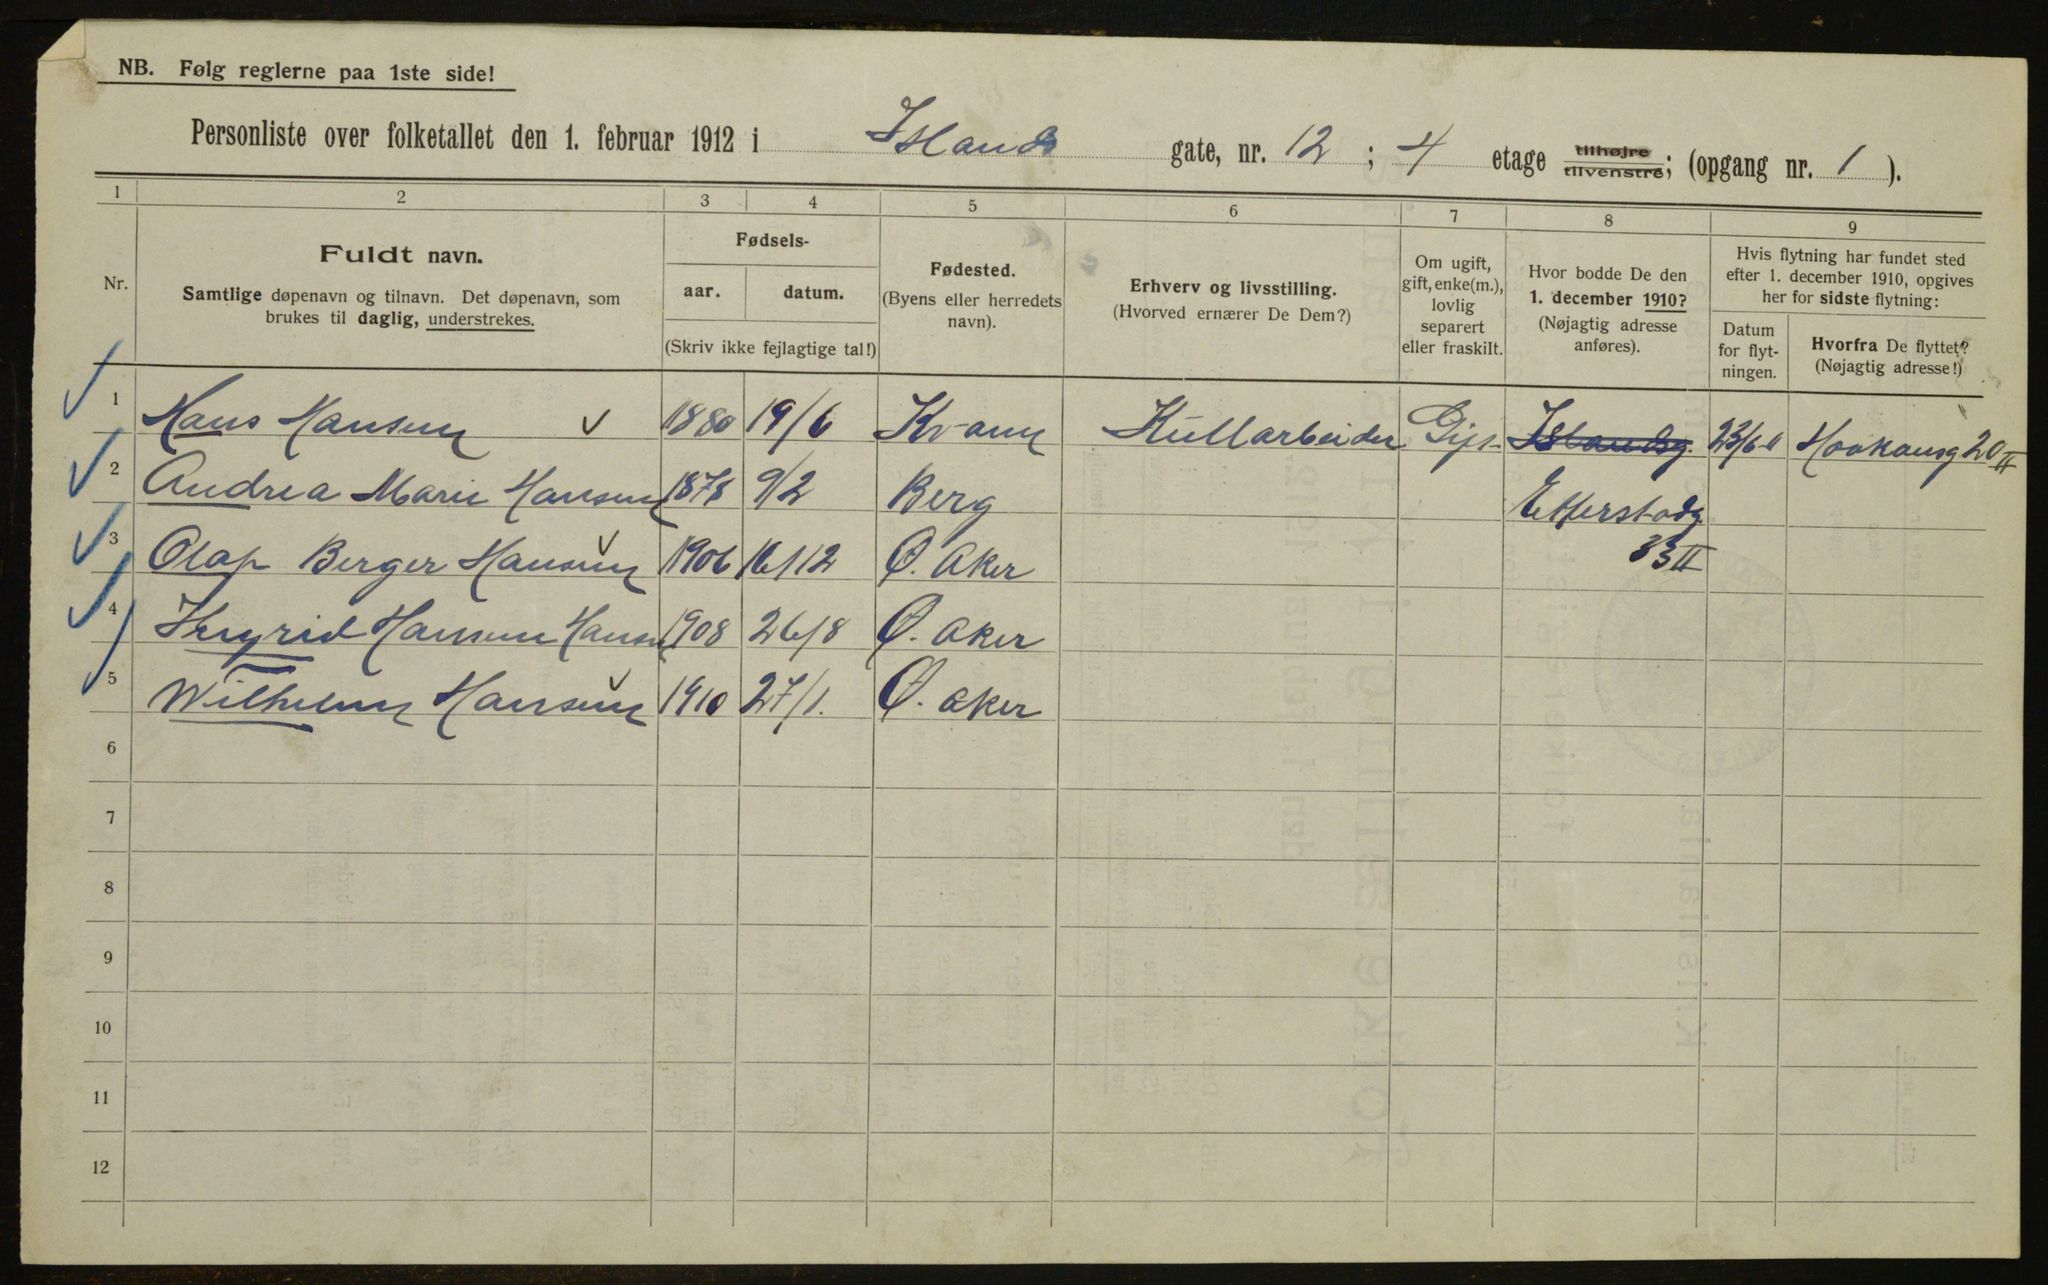 NB. Følg reglerne paa 1ste side!
Personliste over folketallet den 1. februar 1912 i Islands gate, nr. 12 ; 4 etage tilhøjre tilvenstre; (opgang nr. 1 ).
1 2 3 4 5 6 7 8 9
Nr.
Fuldt navn.
Samtlige døpenavn og tilnavn. Det døpenavn, som
brukes til daglig, understrekes.
Fødsels-
aar. datum.
(Skriv ikke fejlagtige tal!)
Fødested.
(Byens eller herredets
navn).
Erhverv og livsstilling.
(Hvorved ernærer De Dem?)
Om ugift,
gift, enke(m.),
lovlig
separert
eller fraskilt.
Hvor bodde De den
1. december 1910?
(Nøjagtig adresse
anføres).
Hvis flytning har fundet sted
efter 1. december 1910, opgives
her for sidste flytning:
Datum
for flyt-
ningen.
Hvorfra De flyttet?
(Nøjagtig adresse!)
1 Hans Hansen 1880 19/6 Kv-ann Kullarbeider Gift Islandsg. 23/6-11 Haakonsg 20 II
2 Andrea Marie Hansen 1878 9/2 Berg Etterstadg.
3 Olaf Berger Hansen 1906 16/12 Ø. Aker 33 II
4 Ingrid Hansen Hansen 1908 26/8 Ø. Aker
5 Wilhelm Hansen 1910 27/1. Ø. Aker
6
7
8
9
10
11
12